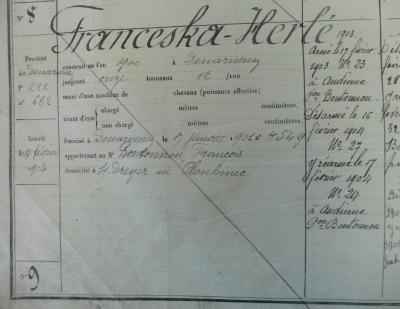 Nº 8
Franceska-Herlé
Provient
de Douarnenez
fº 228
nº 662
Inscrit
le 17 février
1903
construit en l'an 1900 à Douarnenez
jaugeant onze tonneaux 12 /100
muni d'une machine de chevaux (puissance effective)
tirant d'eau
chargé mètres centimètres,
non chargé mètres centimètres,
francisé à Douarnenez le 17 janvier 1902 nº 4549
appartenant au Sr Bontonnou, François
domicilié à St Dreyer en Plouhinec
1903
Armé le 17 février
1903 Nº 23
à Audierne
pon Bontonnou
Désarmé le 16
février 1904
Nº 27
y réarmé le 17
février 1904
Nº 24
à Audierne
pon Bontonnou
Nº 9